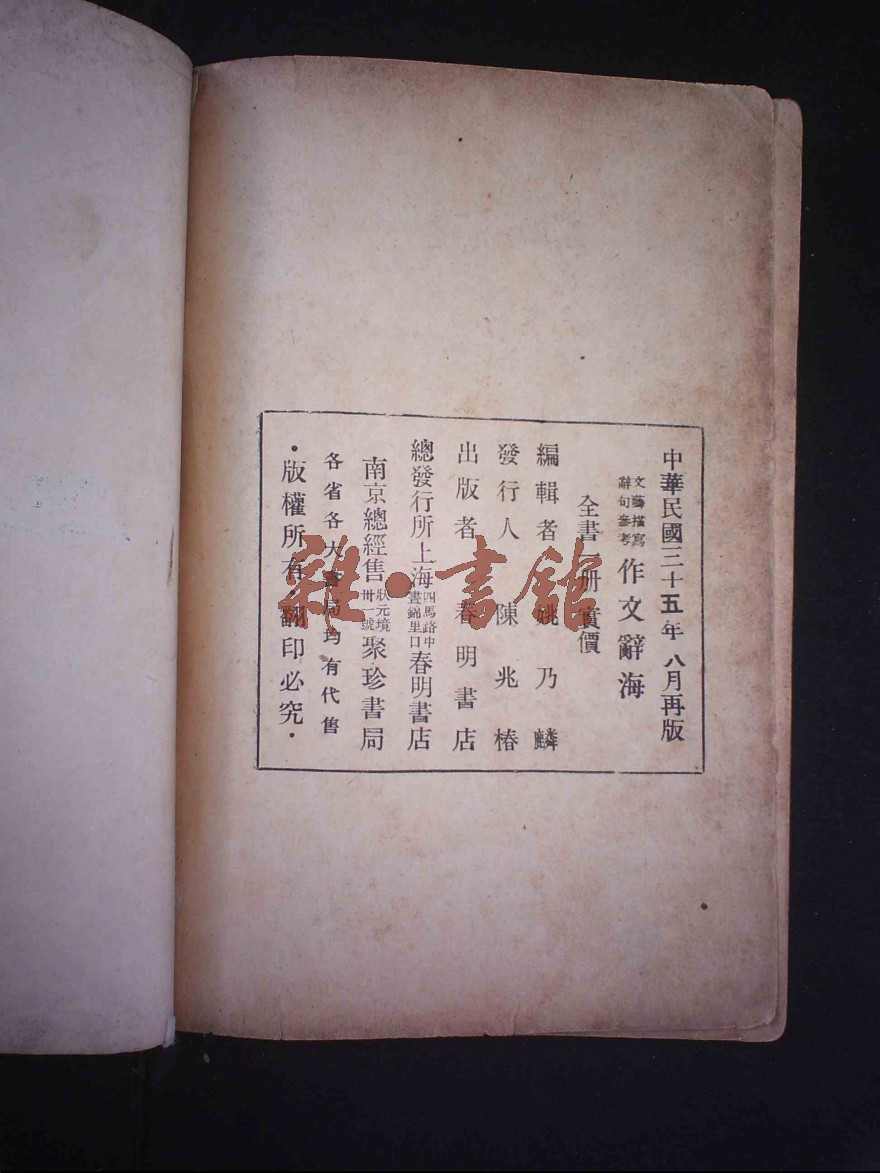 中華民國三十五年八月再版
文藝描寫
辭句參考
作文辭海
全書一册實價
編輯者 姚乃麟
發行人 陳兆椿
出版者 春明書店
總發行所上海四馬路中
畫錦里口春明書店
南京總經售狀元境
卅一號聚珍書局
各省各大書局均有代售
·版權所有·翻印必究·
雜·書館